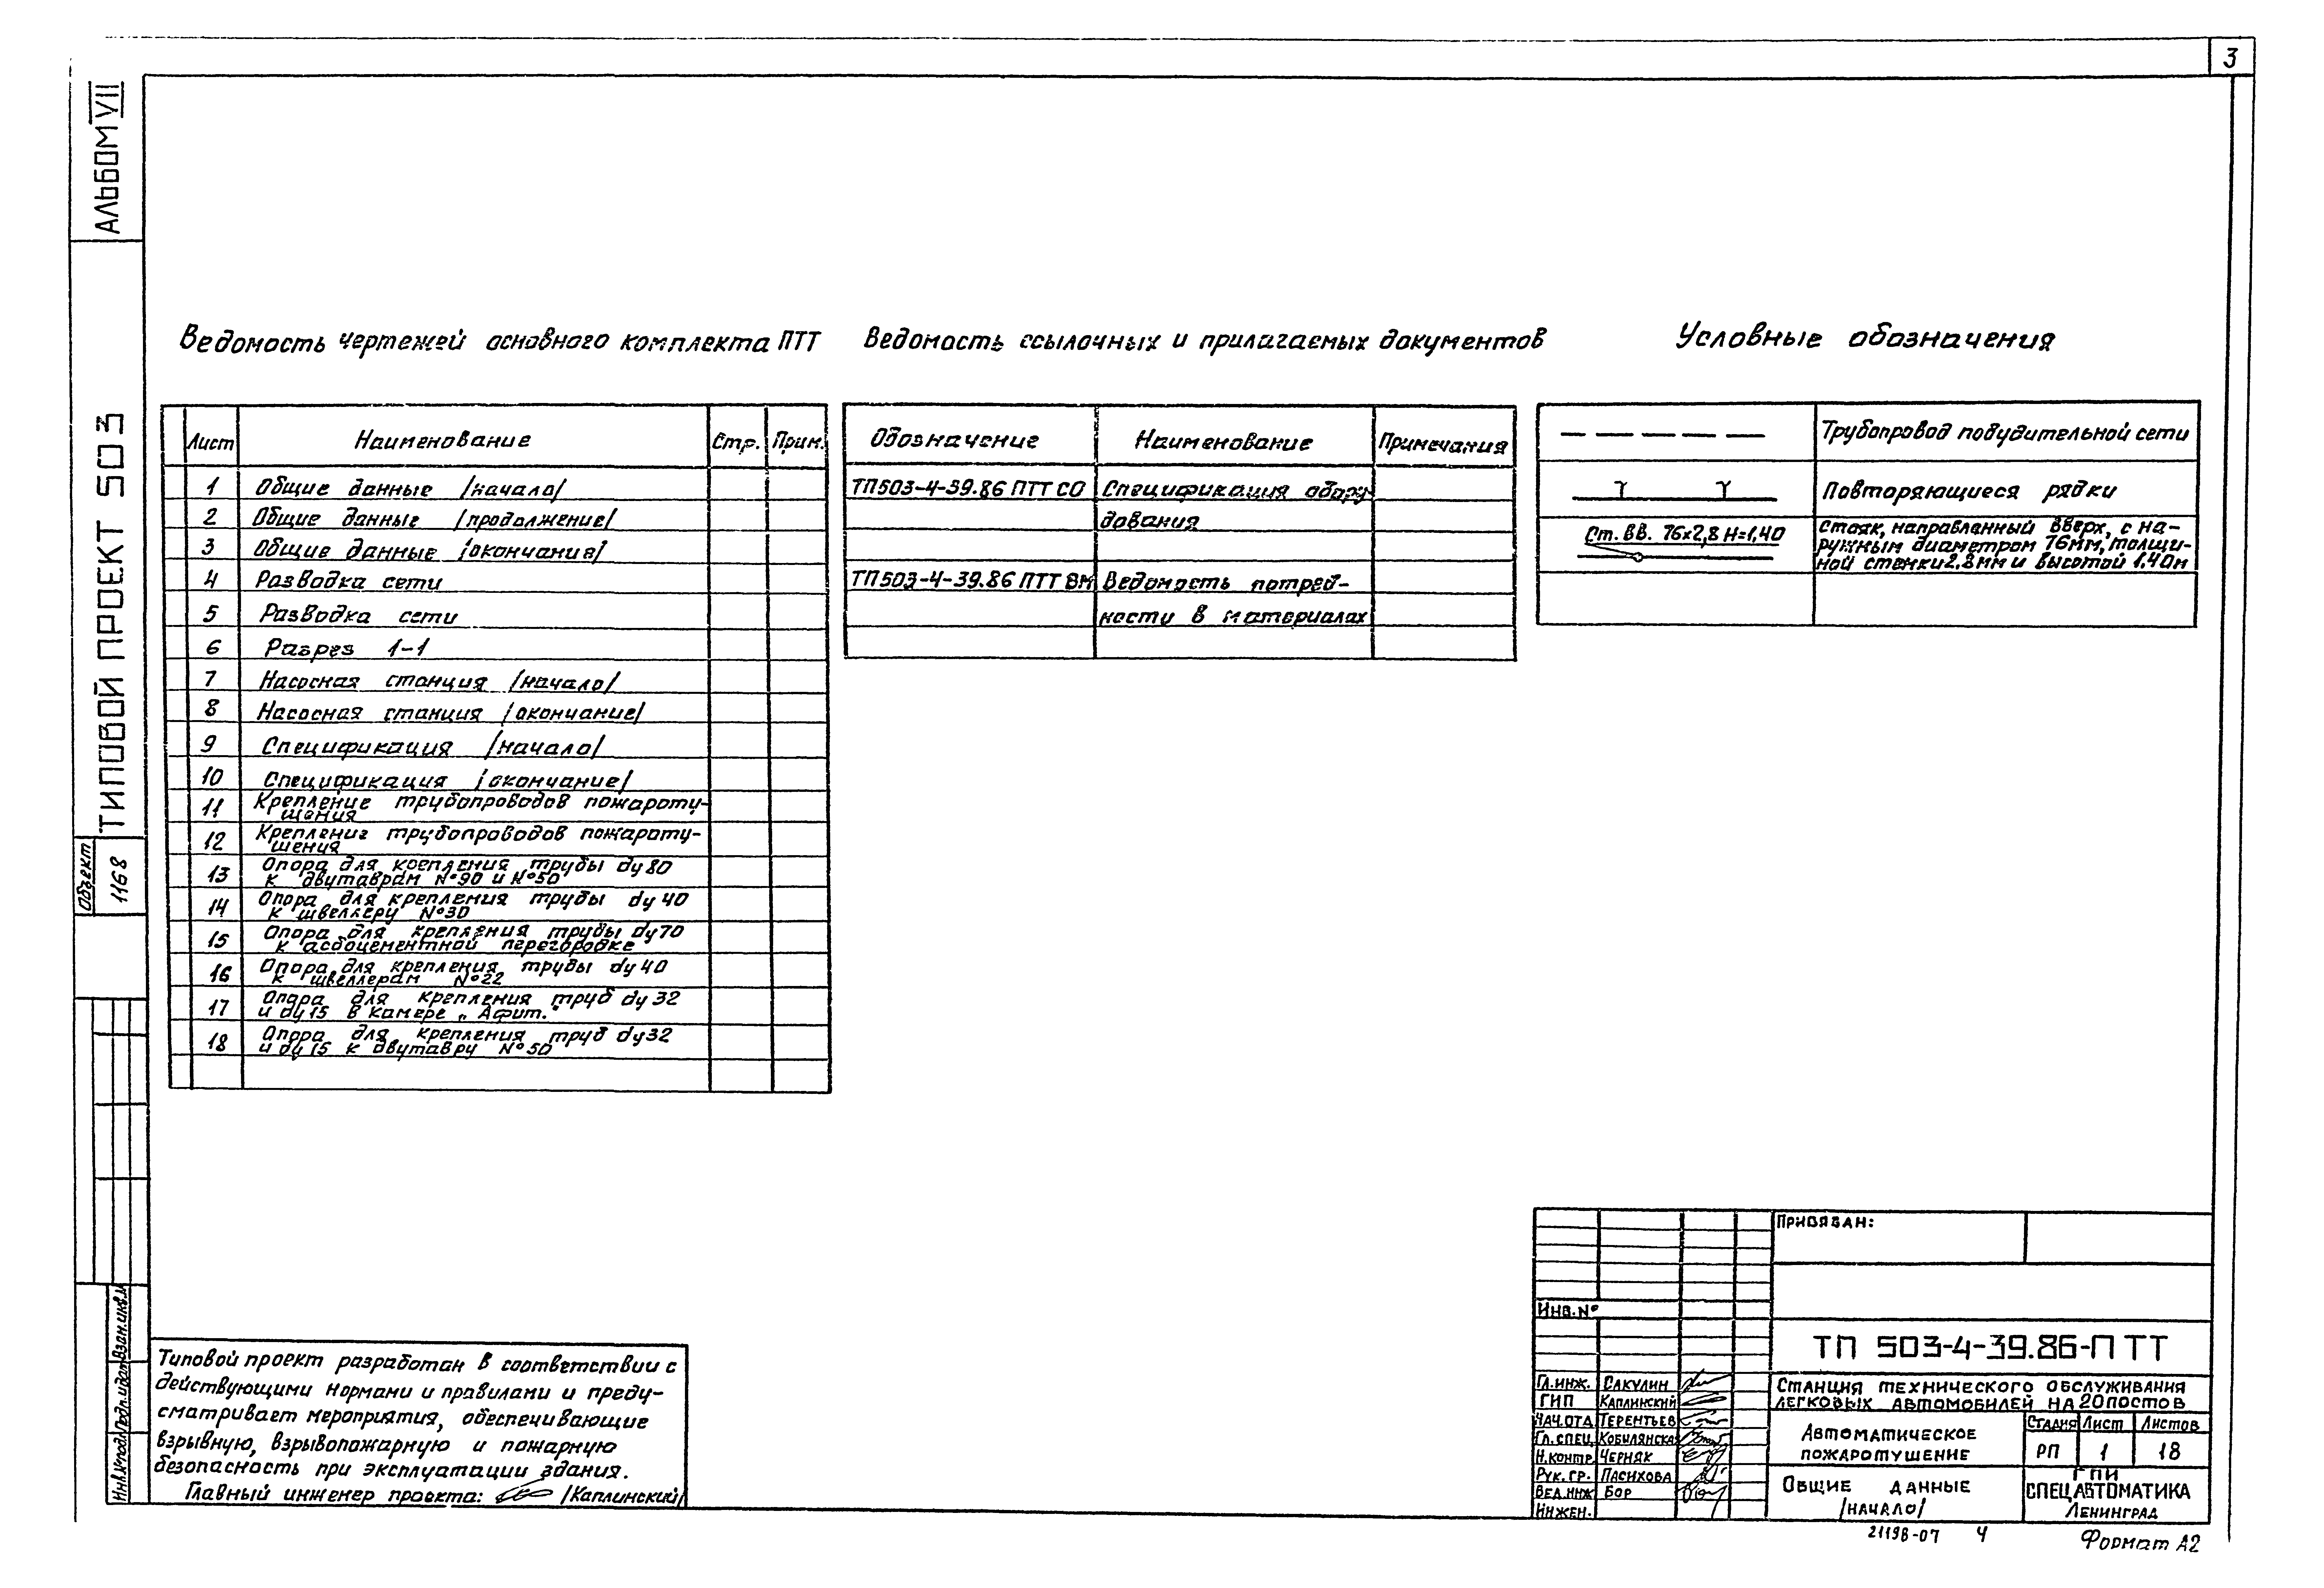 3
АЛЬБОМ VII
ТИПОВОЙ ПРОЕКТ 503
Объект
1168
Взам.инв.№
Подп. и дата
Инв.№ подл.
Ведомость чертежей основного комплекта ПТТ
Лист Наименование Стр. Прим.
1 Общие данные /начало/
2 Общие данные /продолжение/
3 Общие данные /окончания/
4 Разводка сети
5 Разводка сети
6 Разрез 1-1
7 Насосная станция /начало/
8 Насосная станция /окончание/
9 Спецификация /начало/
10 Спецификация /окончание/
11 Крепление трубопроводов пожароту-
шения
12 Крепление трубопроводов пожароту-
шения
13 Опора для крепления трубы dу 80
к двутаврам №90 и №50
14 Опора для крепления трубы dу 40
к швеллеру №30
15 Опора для крепления трубы dу 70
к асбоцементной перегородке
16 Опора для крепления трубы dу 40
к швеллерам №22
17 Опора для крепления труб dу 32
и dу 15 в камере „Афит."
18 Опора для крепления труб dу 32
и dу 15 к двутавру №50
Ведомость ссылочных и прилагаемых документов
Обозначение Наименование Примечания
ТП503-4-39.86 ПТТ СО Спецификация обору-
дования
ТП503-4-39.86 ПТТ ВМ Ведомость потреб-
ности в материалах
Условные обозначения
Трубопровод побудительной сети
Повторяющиеся рядки
Ст. вв. 76х2,8 Н=1,40
Стояк, направленный вверх, с на-
ружным диаметром 76мм, толщи-
ной стенки 2,8мм и высотой 1,40м
Типовой проект разработан в соответствии с
действующими нормами и правилами и преду-
сматривает мероприятия, обеспечивающие
взрывную, взрывопожарную и пожарную
безопасность при эксплуатации здания.
Главный инженер проекта: /Каплинский/
Привязан:
Инв.№
ТП 503-4-39.86-ПТТ
Гл.инж. Сакулин
ГИП Каплинский
Нач.отд. Терентьев
Гл.спец. Кобилянская
Н.контр. Черняк
Рук. гр. Пасихова
Вед.инж Бор
Инжен.
Станция технического обслуживания
легковых автомобилей на 20 постов
Автоматическое
пожаротушение
Стадия Лист Листов
РП 1 18
Общие данные
/начало/
ГПИ
СПЕЦАВТОМАТИКА
Ленинград
21198-07 4
Формат А2